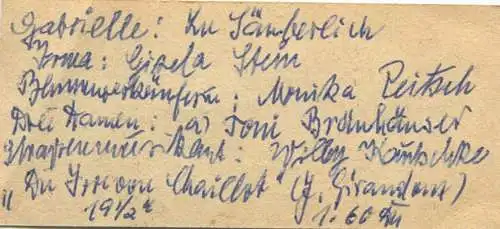 Gabrielle: Lu Säuberlich
Irma: Gisela Stein
Blumenverkäuferin: Monika Peitsch
Drei Damen: a) Toni Bräuhäuser
Strassenmusikant: Willy Kautschke
"Die Irre von Chaillot" (J. Giraudoux)
19 1/2 1.60